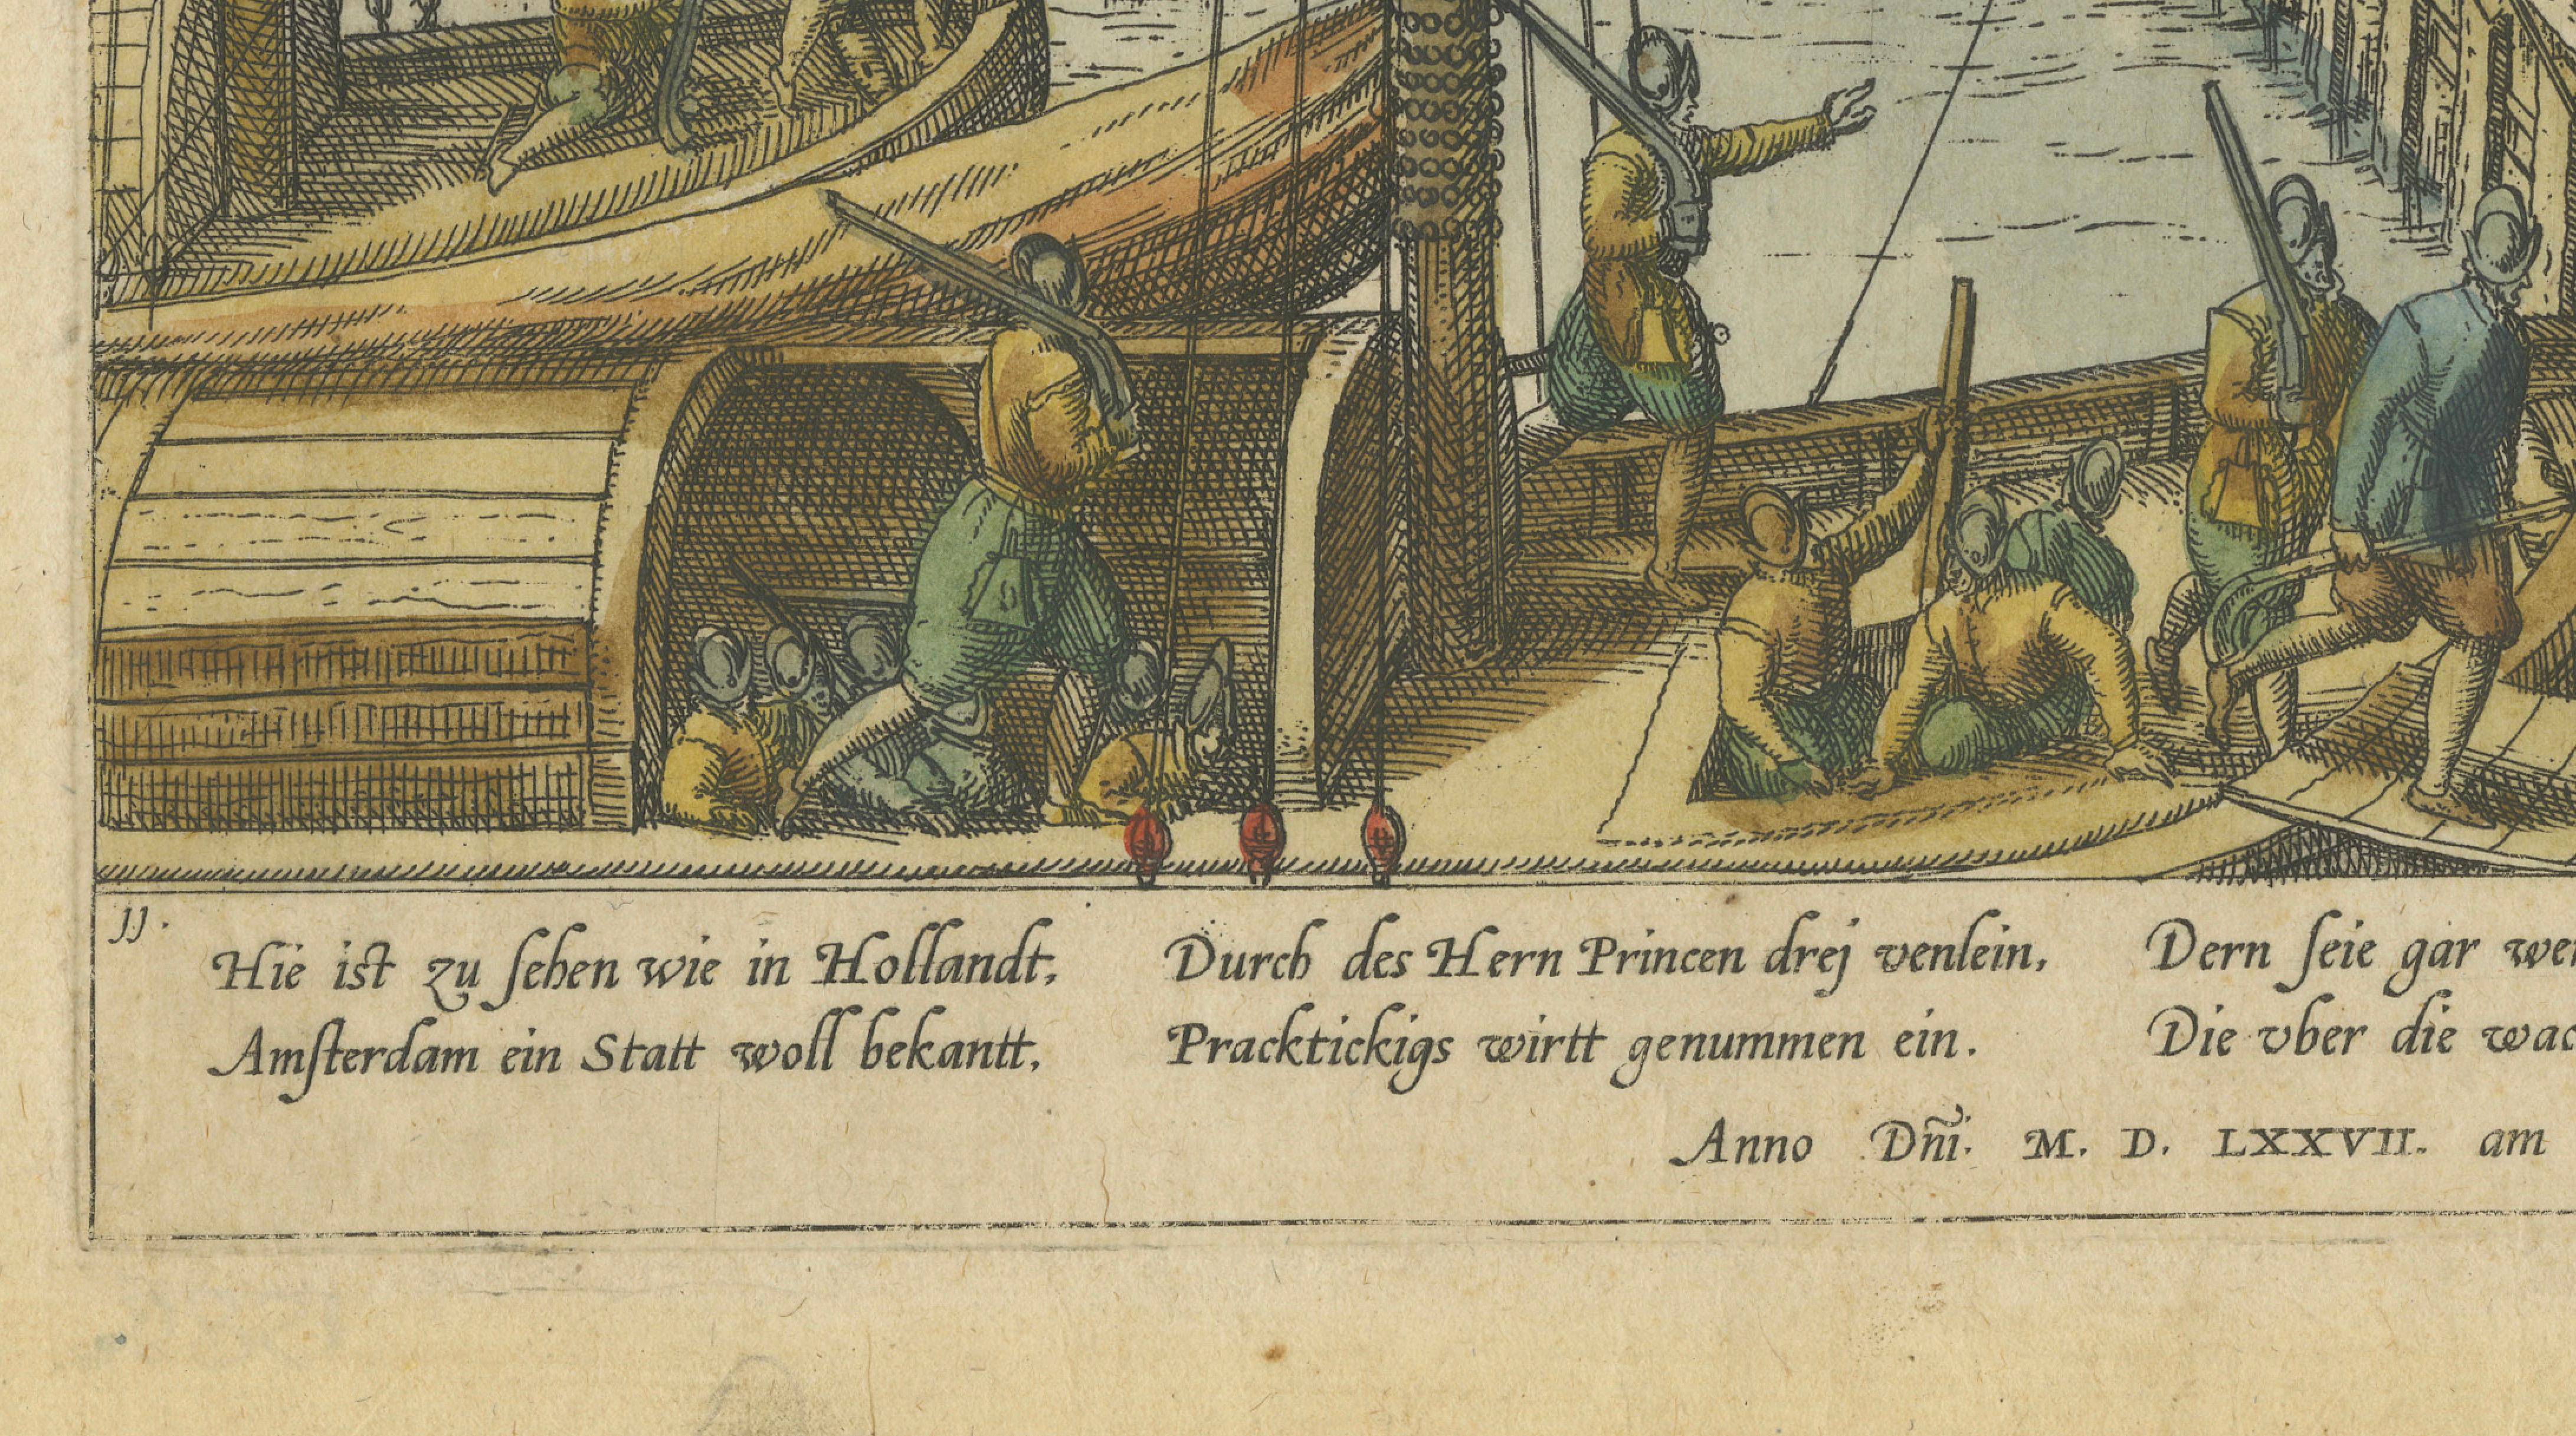 JJ.
Hie ist zu sehen wie in Hollandt,
Amsterdam ein Statt woll bekantt,
Durch des Hern Princen drej venlein,
Pracktickigs wirtt genummen ein.
Dern seie gar
Die vber die
Anno Dñi. M. D. LXXVII. am